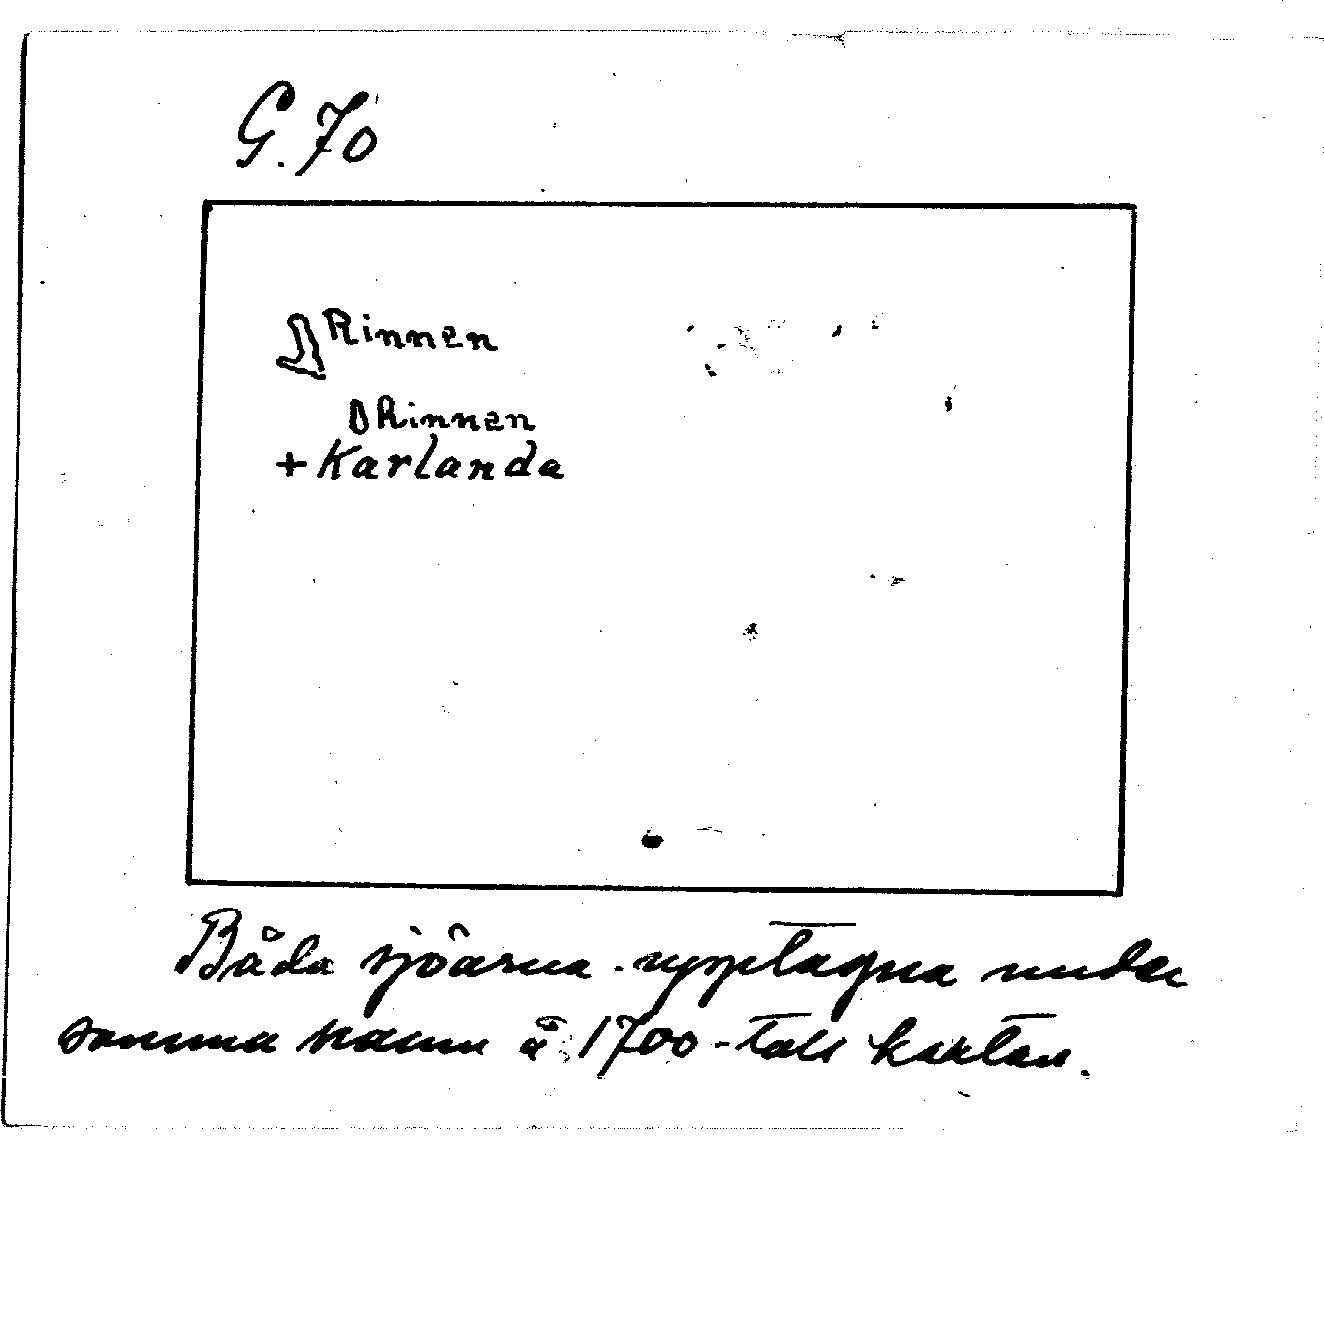 G. 70
Rinnen
Rinnen
+ Karlanda
Båda sjöarna upptagna under
samma namn å 1700-tals kartan.